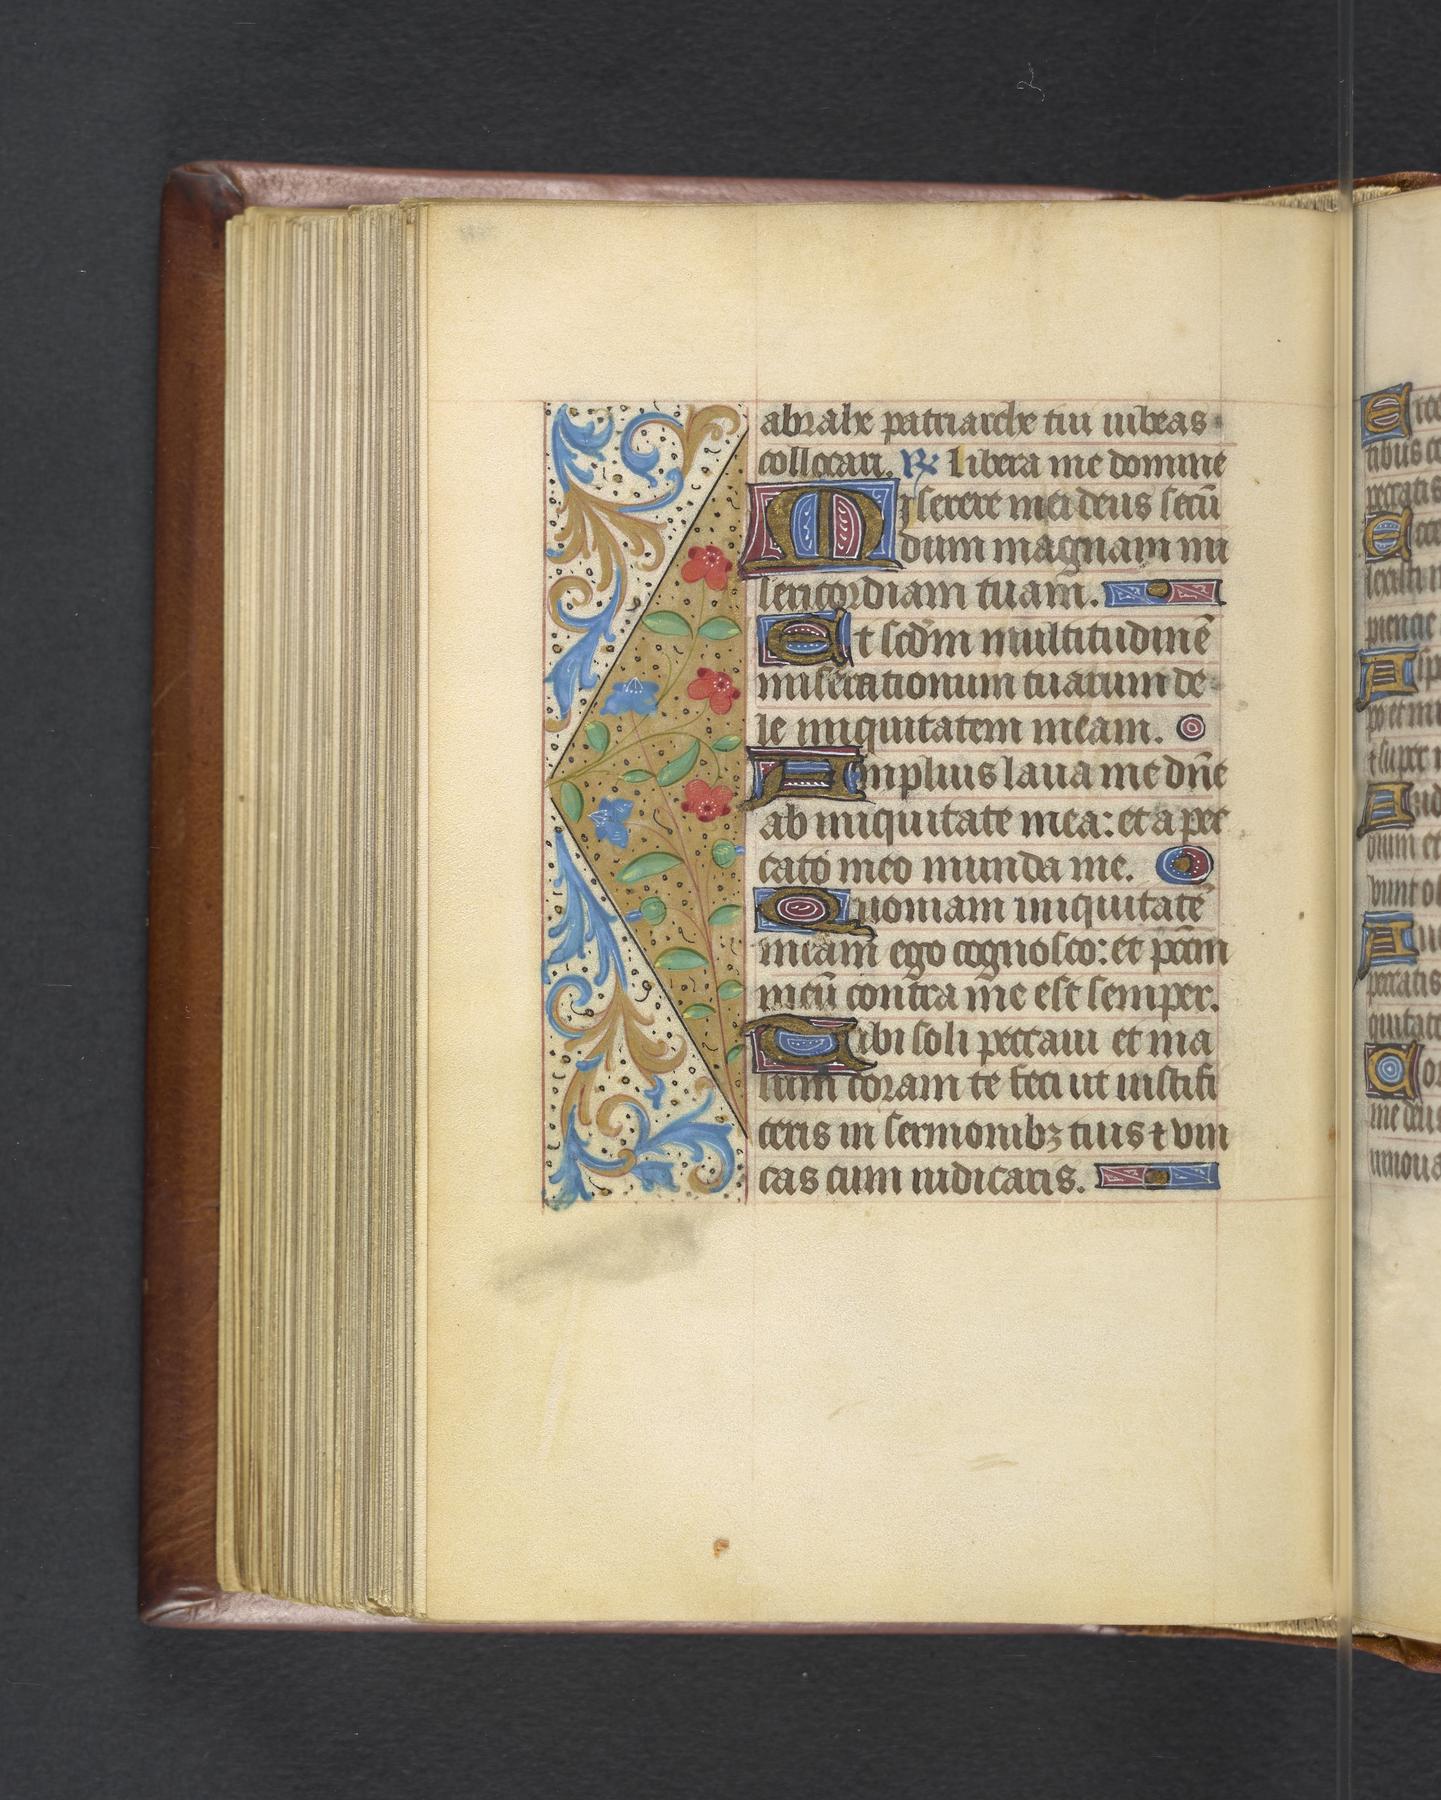 abrahe patriarche tui iubeas
collocari. R̷ Libera me domine
Miserere mei deus secū
dum magnam mi
sericordiam tuam.
Et scd̄m multitudinē
miserationum tuarum de
le iniquitatem meam.
Amplius laua me dn̄e
ab iniquitate mea: et a pec
cato meo munda me.
Quoniam iniquitatē
meam ego cognosco: et pctm̄
meū contra me est semper.
Tibi soli peccaui et ma
lum coram te feci ut iustifi
ceris in sermonibꝫ tuis ⁊ vin
cas cum iudicaris.